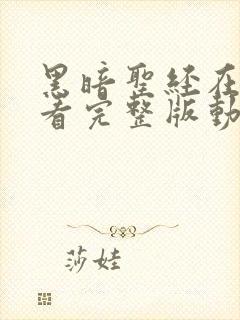 黑暗聖經在
看完整版動
莎娃